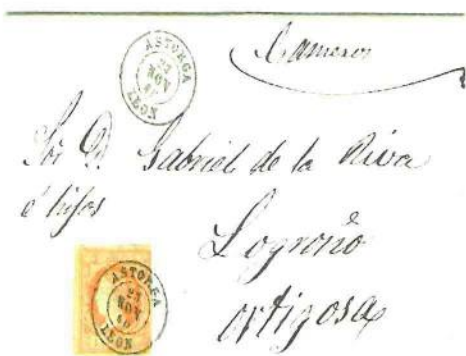 ASTORGA
23
NOV
60
LEON
Cameros
Sor. D. Gabriel de la Riva
é hijos
Logroño
ortigosa
ASTORGA
23
NOV
60
LEON